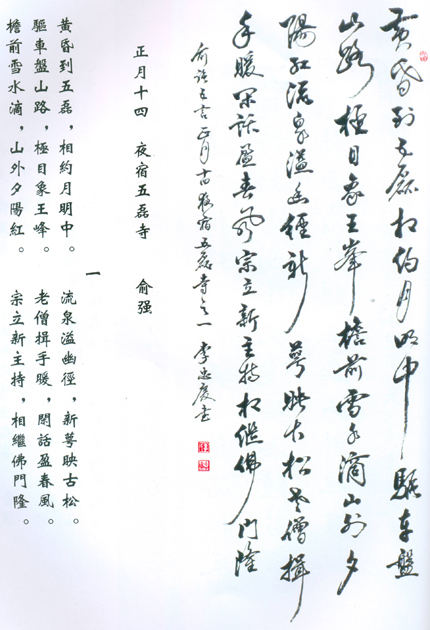 黄昏到五磊相約月明中驅車盤
山路極目象王峰檐前雪水滴山外夕
陽紅流泉溢幽徑新萼映古松老僧揖
手暖閑話盈春風宗立新主持相繼佛門隆
俞 正月十四夜宿五磊寺之一 李忠慶書
正月十四 夜宿五磊寺 俞强
一
黃昏到五磊，相約月明中。
驅車盤山路，極目象王峰。
檐前雪水滴，山外夕陽紅。
流泉溢幽徑，新萼映古松。
老僧揖手暖，閒話盈春風。
宗立新主持，相繼佛門隆。